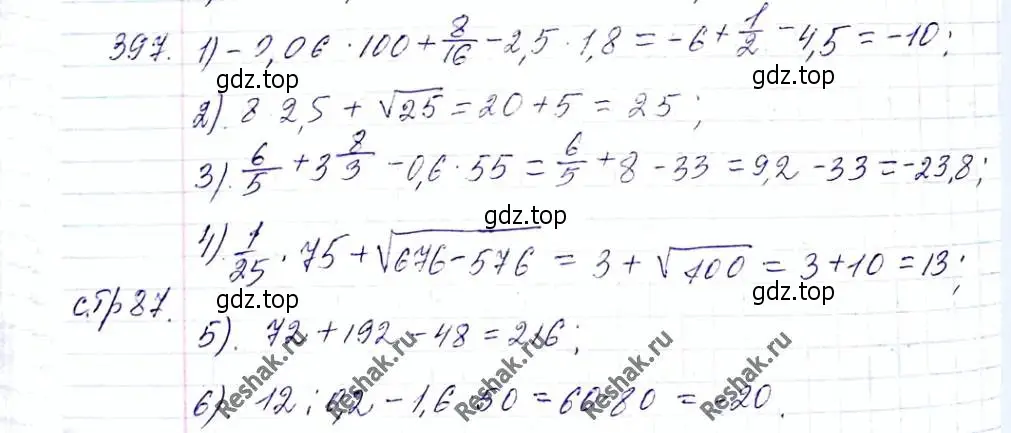 397. 1) -0,06 · 100 + 8/16 - 2,5 · 1,8 = -6 + 1/2 - 4,5 = -10;
gdz.top
2). 8 2,5 + √25 = 20 + 5 = 25;
3). 6/5 + 3 8/3 - 0,6 · 55 = 6/5 + 8 - 33 = 9,2 - 33 = -23,8;
gdz.top
gdz.top
4). 1/25 · 75 + √676-576 = 3 + √100 = 3 + 10 = 13;
gdz.top
gdz.top
стр 87.
5). 72 + 192 - 48 = 216;
6) 12 : 0,2 - 1,6 · 50 = 60-80 = -20.
Reshak.ru
Reshak.ru
Reshak.ru
Reshak.ru